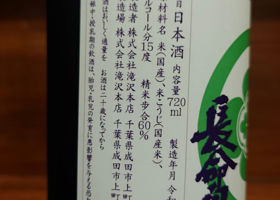 日本酒 内容量720ml 製造年月 令和
原材料名 米(国産)、米こうじ(国産米)、
アルコール分15度 精米歩合60%
製造者 株式会社滝沢本店 千葉県成田市上町
製造場 株式会社滝沢本店 千葉県成田市上町
飲酒はおいしく適量を お酒は二十歳になってから
妊娠中・授乳期の飲酒は、胎児・乳児の発育に悪影響を与える恐
長命